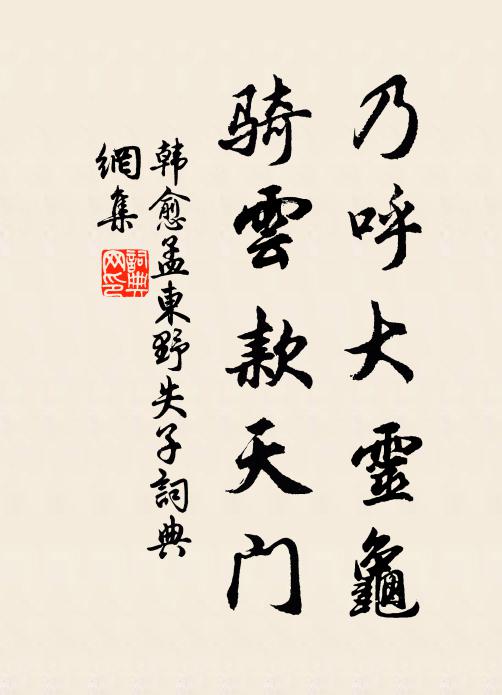 乃呼大靈龜
骑雲款天门
韩愈孟東野失子詞典
網集
詞典
网印